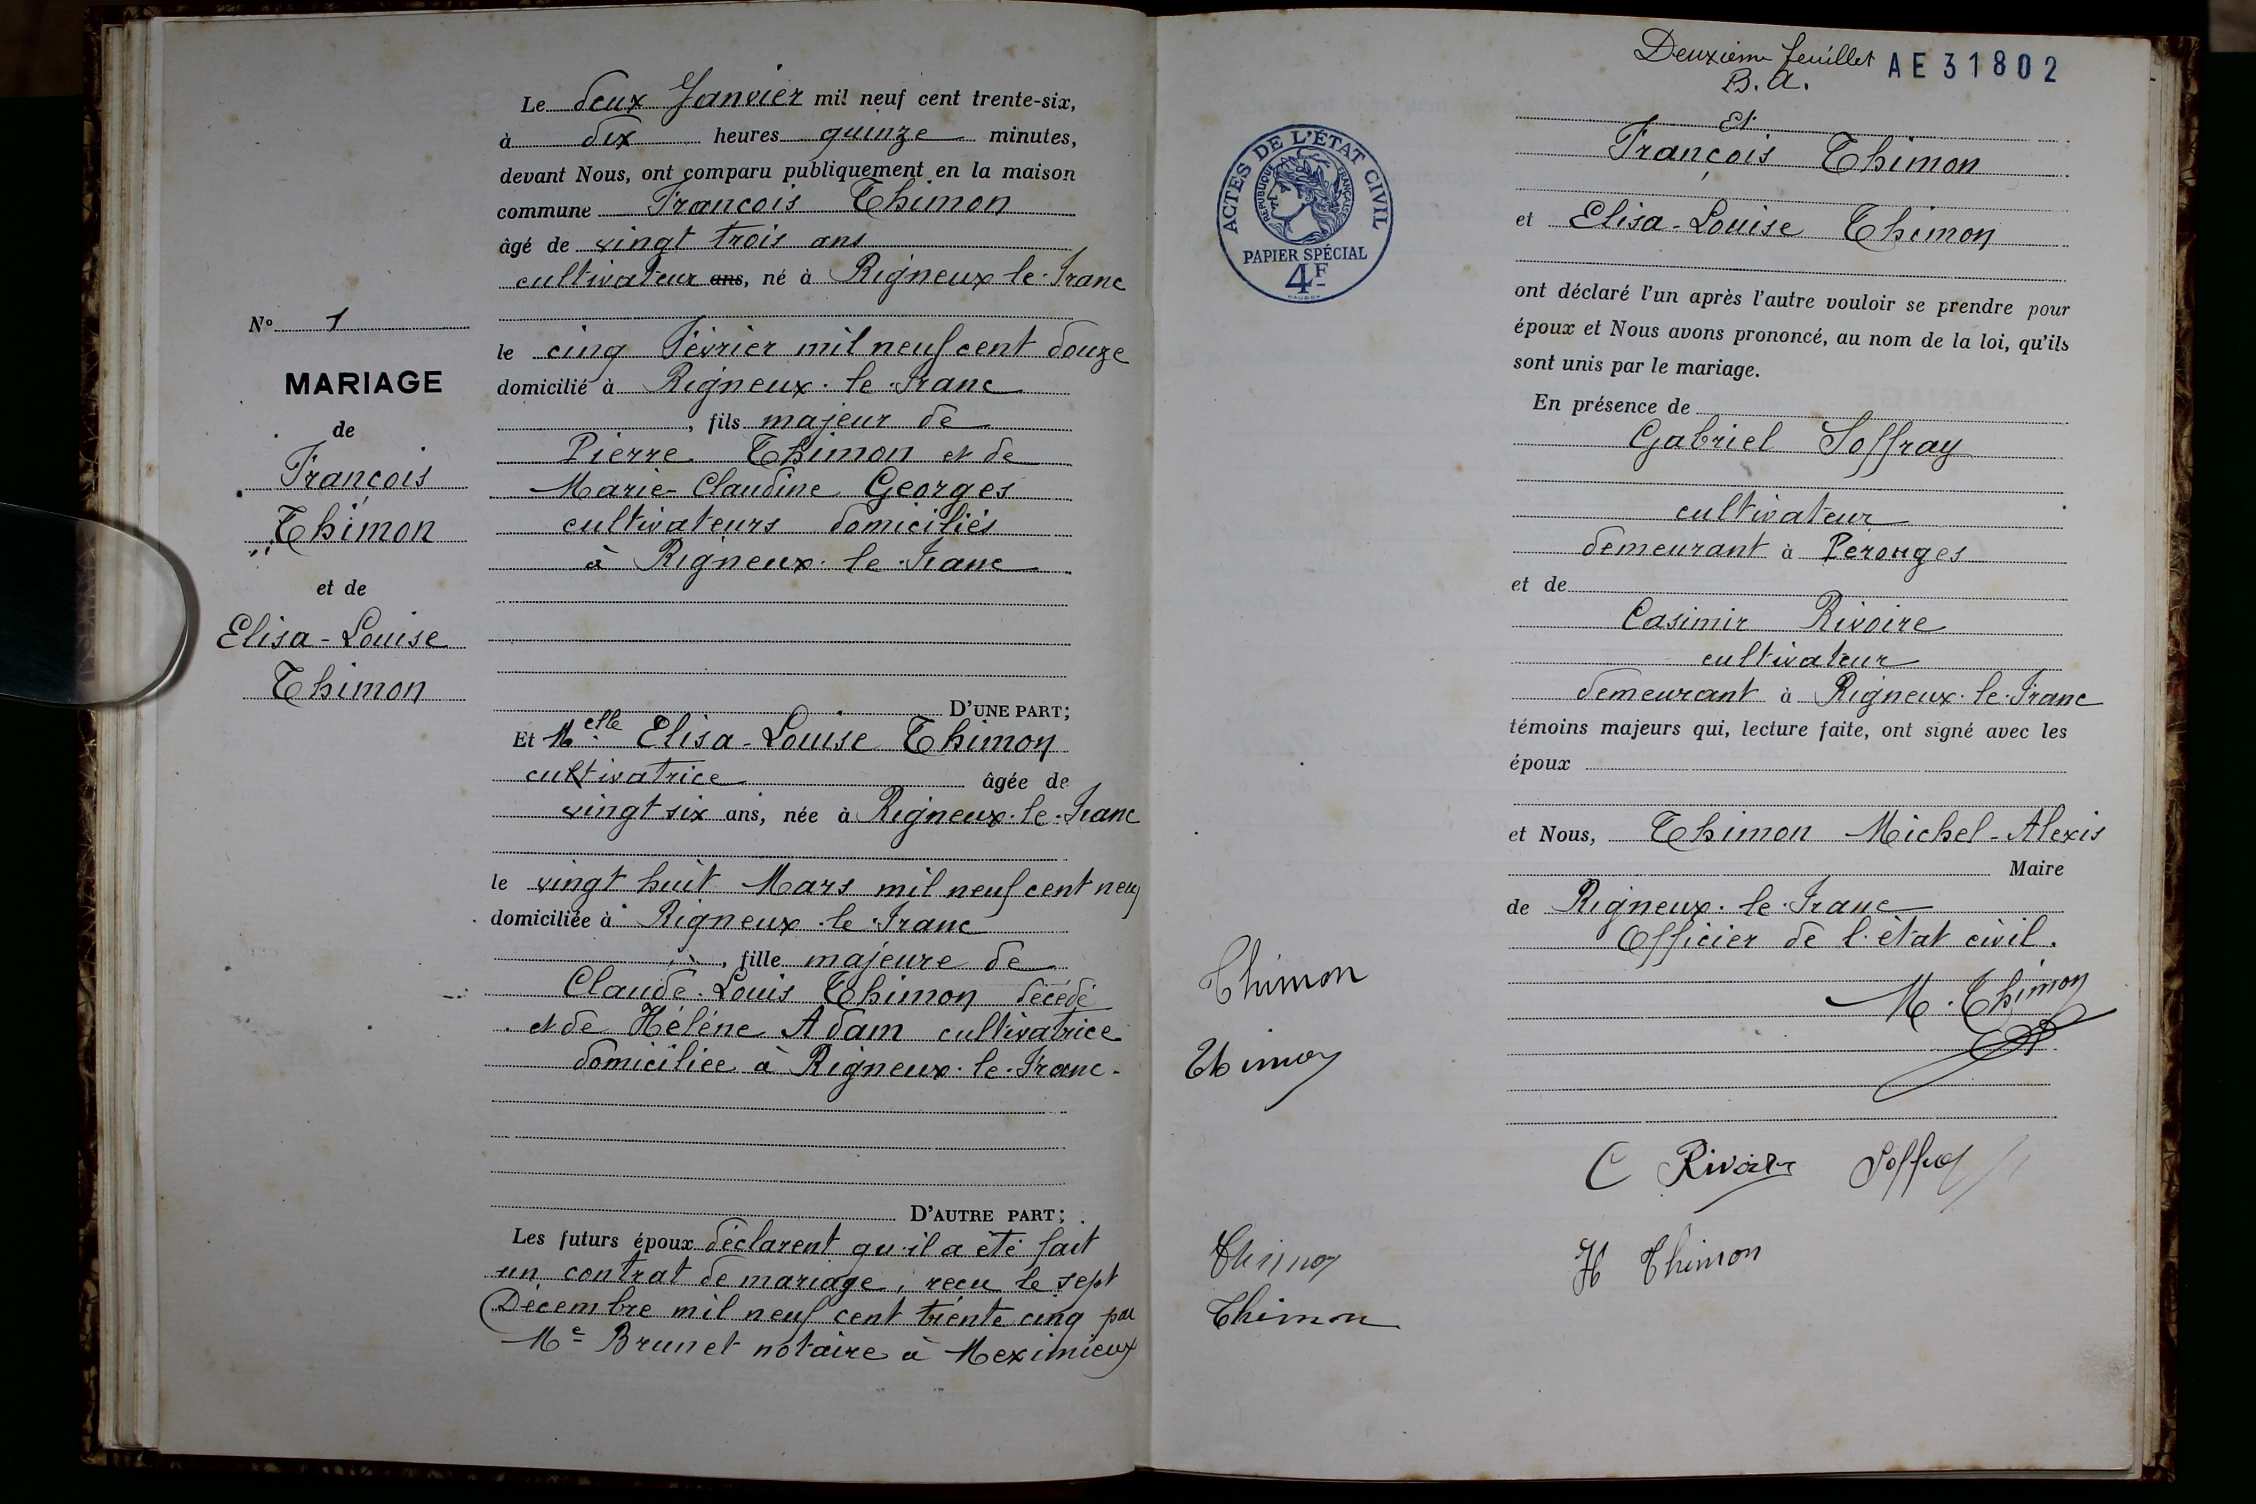 Le deux Janvier mil neuf cent trente-six,
à dix heures quinze minutes,
devant Nous, ont comparu publiquement en la maison
commune François Thimon
âgé de vingt trois ans
cultivateur ans, né à Rigneux-le-Franc
le cinq Février mil neuf cent douze
domicilié à Rigneux-le-Franc
, fils majeur de
Pierre Thimon et de
Marie-Claudine Georges
cultivateurs domiciliés
à Rigneux-le-Franc
D'UNE PART;
Et Melle Elisa-Louise Thimon
cultivatrice âgée de
vingt six ans, née à Rigneux-le-Franc
le vingt huit Mars mil neuf cent neuf
domiciliée à Rigneux-le-Franc
, fille majeure de
Claude-Louis Thimon décédé
et de Hélène Adam cultivatrice
domiciliée à Rigneux-le-Franc.
D'AUTRE PART;
Les futurs époux déclarent qu'il a été fait
un contrat de mariage, reçu le sept
Décembre mil neuf cent trente cinq par
Me Brunet notaire à Meximieux
No 1
MARIAGE
de
François
Thimon
et de
Elisa-Louise
Thimon
Deuxième feuillet AE31802
B.A.
ACTES DE L'ÉTAT CIVIL
RÉPUBLIQUE FRANÇAISE
PAPIER SPÉCIAL
4F
Et
François Thimon
et Elisa-Louise Thimon
ont déclaré l'un après l'autre vouloir se prendre pour
époux et Nous avons prononcé, au nom de la loi, qu'ils
sont unis par le mariage.
En présence de
Gabriel Soffray
cultivateur
demeurant à Perouges
et de
Casimir Rivoire
cultivateur
demeurant à Rigneux-le-Franc
témoins majeurs qui, lecture faite, ont signé avec les
époux
et Nous, Thimon Michel-Alexis
Maire
de Rigneux-le-Franc
Officier de l'état civil.
M. Thimon
Thimon
Thimon
C Rivoire Soffray
H Thimon
Thimon
Thimon